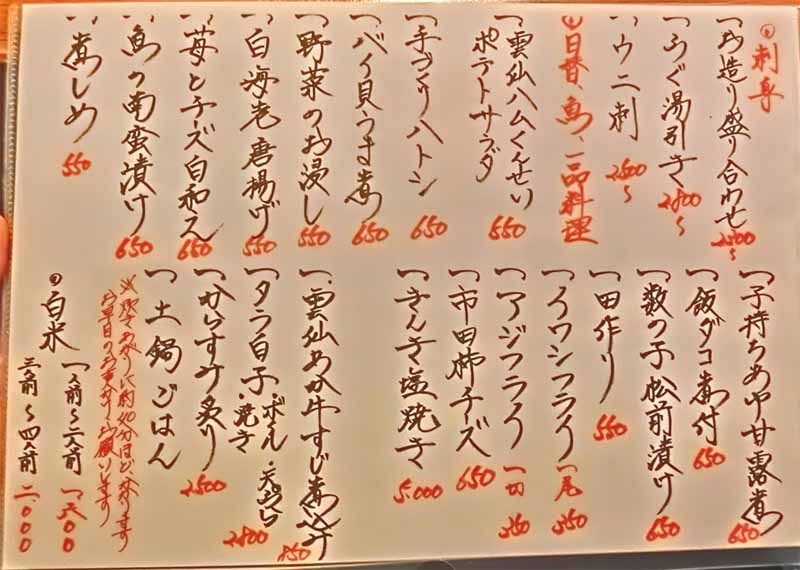 刺身
一、お造り盛り合わせ 2500〜
一、ふぐ湯引き 2800〜
一、ウニ刺 2500〜
日替、魚、一品料理
一、雲仙ハムくんせい
ポテトサラダ 550
一、手づくりハトシ 650
一、バイ貝うま煮 650
一、野菜のお浸し 550
一、白海老唐揚げ 550
一、苺とチーズ白和え 650
一、魚の南蛮漬け 650
一、煮しめ 550
一、子持ちあゆ甘露煮 650
一、飯ダコ煮付 650
一、数の子松前漬け 650
一、田作り 550
一、イワシフライ 一尾 350
一、アジフライ 一切 350
一、市田柿チーズ 650
一、きんき塩焼き 5.000
一、雲仙あか牛すじ煮込み 850
一、タラ白子 ポン酢・天ぷら
・焼き 2800
一、からすみ炙り 2500
一、土鍋ごはん
お早目のお声かけお願いします
白米 一人前〜二人前
三人前〜四人前 二、000